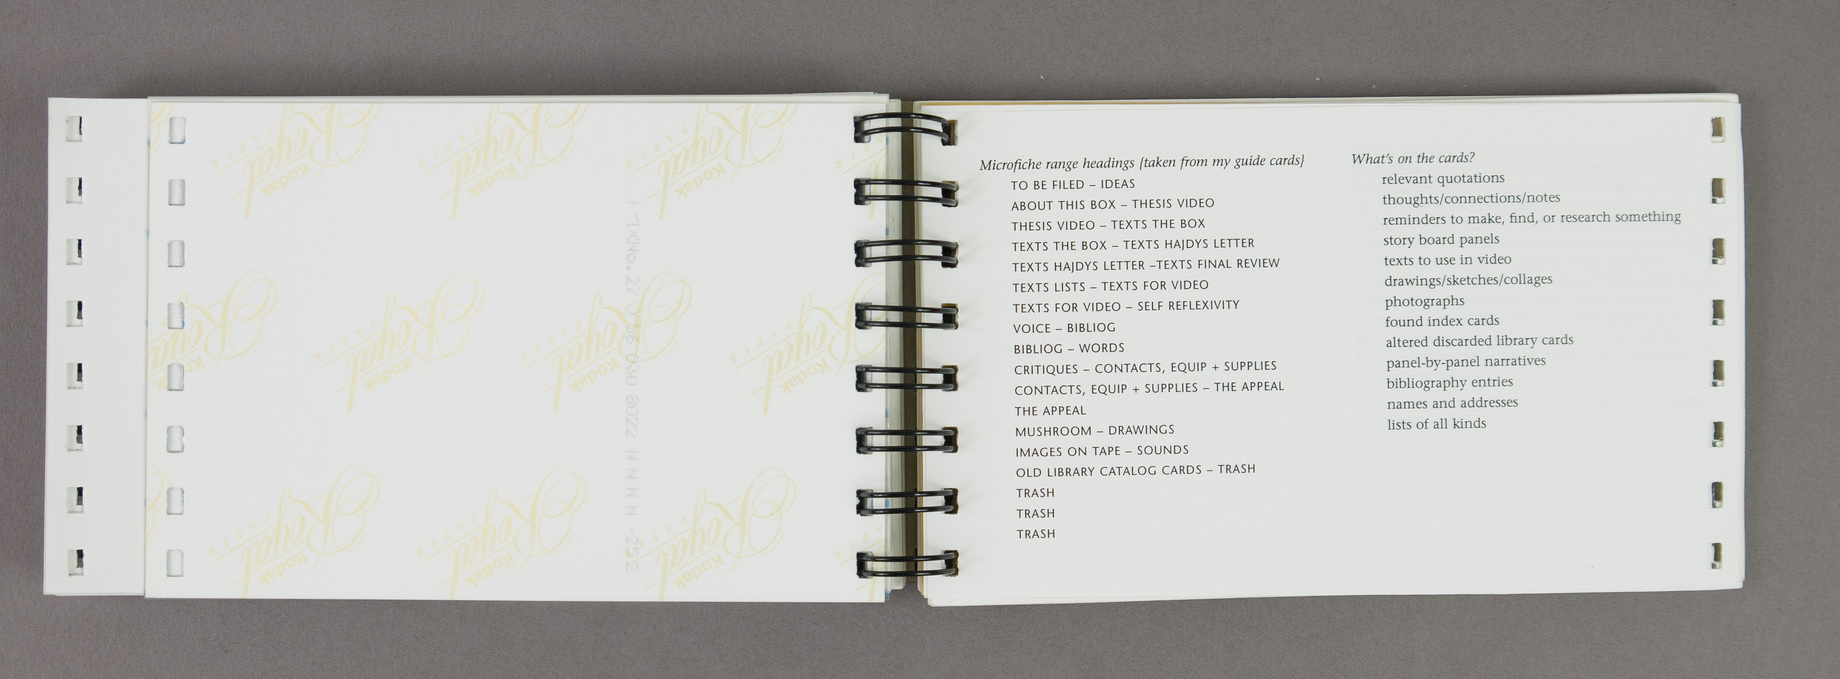 Kodak
Royal
PAPER
Kodak
Royal
PAPER
Kodak
Royal
PAPER
Kodak
Royal
PAPER
Kodak
Royal
PAPER
Kodak
Royal
PAPER
Kodak
Royal
PAPER
Kodak
Royal
PAPER
Kodak
Royal
PAPER
Kodak
Royal
Microfiche range headings {taken from my guide cards}
TO BE FILED – IDEAS
ABOUT THIS BOX – THESIS VIDEO
THESIS VIDEO – TEXTS THE BOX
TEXTS THE BOX – TEXTS HAJDYS LETTER
TEXTS HAJDYS LETTER –TEXTS FINAL REVIEW
TEXTS LISTS – TEXTS FOR VIDEO
TEXTS FOR VIDEO – SELF REFLEXIVITY
VOICE – BIBLIOG
BIBLIOG – WORDS
CRITIQUES – CONTACTS, EQUIP + SUPPLIES
CONTACTS, EQUIP + SUPPLIES – THE APPEAL
THE APPEAL
MUSHROOM – DRAWINGS
IMAGES ON TAPE – SOUNDS
OLD LIBRARY CATALOG CARDS – TRASH
TRASH
TRASH
TRASH
What's on the cards?
relevant quotations
thoughts/connections/notes
reminders to make, find, or research something
story board panels
texts to use in video
drawings/sketches/collages
photographs
found index cards
altered discarded library cards
panel-by-panel narratives
bibliography entries
names and addresses
lists of all kinds